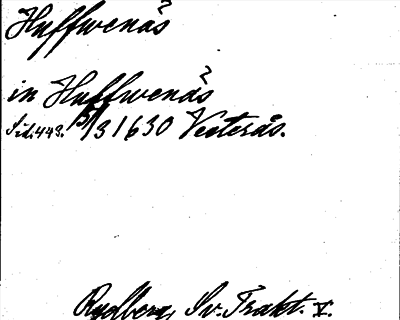 Huffwenås ?
in Huffwenås ?
Sid. 443. 15/3 1630 Vesterås.
Rydberg, Sv. Trakt. V.